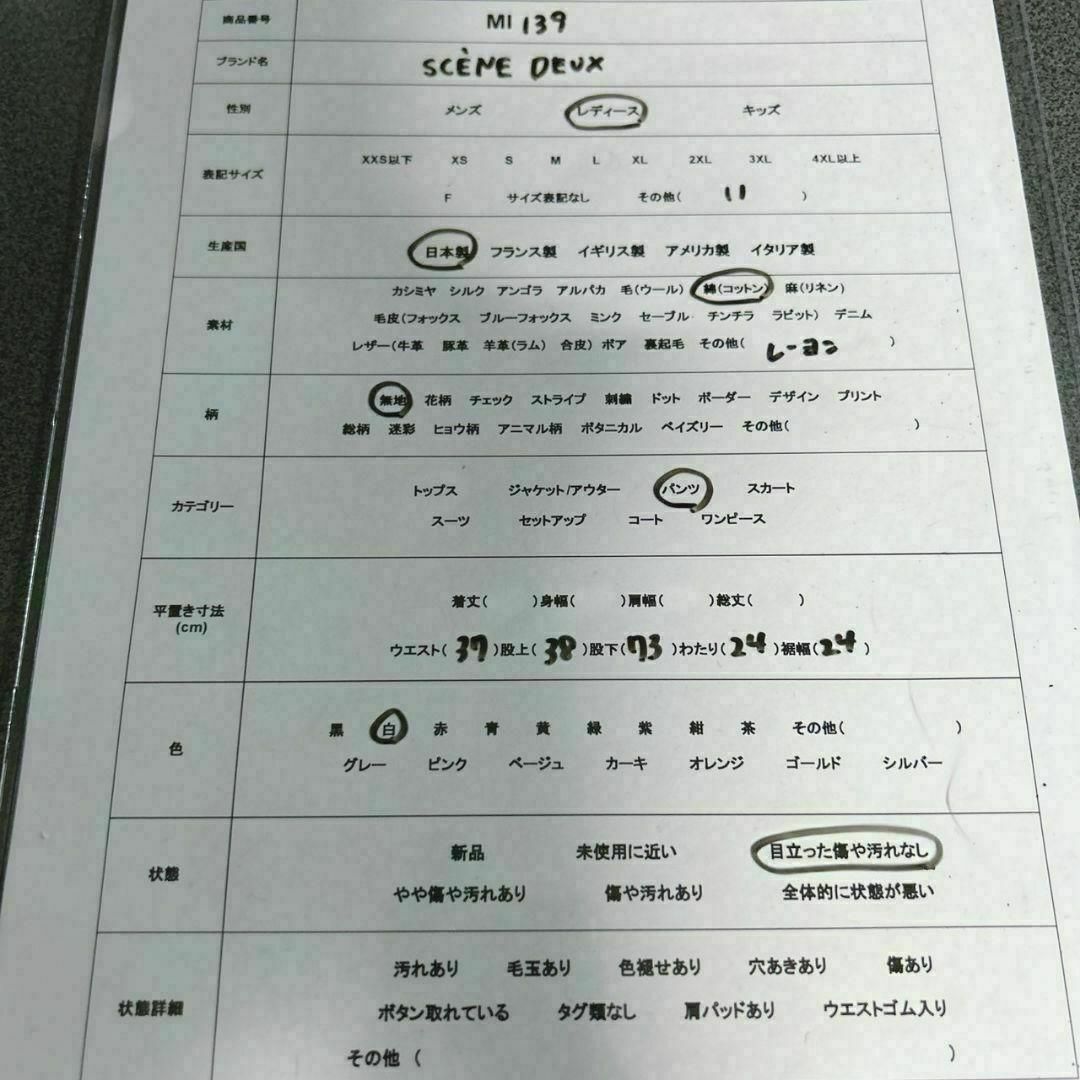 商品番号 MI 139
ブランド名 SCÈNE DEUX
性別 メンズ レディース キッズ
XXS以下 XS S M L XL 2XL 3XL 4XL以上
表記サイズ
F サイズ表記なし その他( 11 )
生産国 日本製 フランス製 イギリス製 アメリカ製 イタリア製
カシミヤ シルク アンゴラ アルパカ 毛(ウール) 綿(コットン) 麻(リネン)
素材 毛皮(フォックス ブルーフォックス ミンク セーブル チンチラ ラビット) デニム
レザー(牛革 豚革 羊革(ラム) 合皮) ボア 裏起毛 その他( レーヨン )
無地 花柄 チェック ストライプ 刺繍 ドット ボーダー デザイン プリント
柄
総柄 迷彩 ヒョウ柄 アニマル柄 ボタニカル ペイズリー その他( )
トップス ジャケット/アウター パンツ スカート
カテゴリー
スーツ セットアップ コート ワンピース
着丈( )身幅( )肩幅( )総丈( )
平置き寸法
(cm)
ウエスト( 37 )股上( 38 )股下( 73 )わたり( 24 )裾幅( 24 )
黒 白 赤 青 黄 緑 紫 紺 茶 その他( )
色
グレー ピンク ベージュ カーキ オレンジ ゴールド シルバー
新品 未使用に近い 目立った傷や汚れなし
状態
やや傷や汚れあり 傷や汚れあり 全体的に状態が悪い
汚れあり 毛玉あり 色褪せあり 穴あきあり 傷あり
状態詳細 ボタン取れている タグ類なし 肩パッドあり ウエストゴム入り
その他 ( )